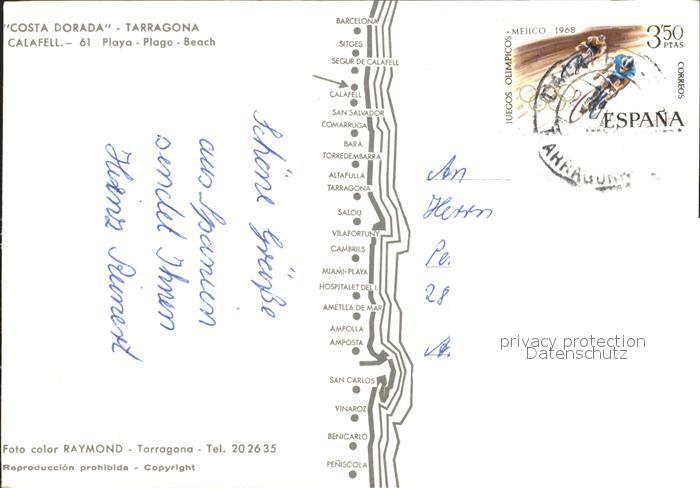 "COSTA DORADA" - TARRAGONA
CALAFELL.- 61 Playa - Plage - Beach
BARCELONA
SITGES
SEGUR DE CALAFELL
CALAFELL
SAN SALVADOR
COMARRUGA
BARA
TORREDEMBARRA
ALTAFULLA
TARRAGONA
SALOU
VILAFORTUNY
CAMBRILS
MIAMI-PLAYA
HOSPITALET DEL I.
AMETLLA DE MAR
AMPOLLA
AMPOSTA
SAN CARLOS
VINAROZ
BENICARLO
PEÑISCOLA
JUEGOS OLIMPICOS - MEJICO - 1968
3'50
PTAS
CORREOS
ESPAÑA
TARRAGONA
Schöne Grüße
aus Spanien
sendet Ihnen
Heinz
An
Herrn
Pe.
28
A.
privacy protection
Datenschutz
Foto color RAYMOND - Tarragona - Tel. 202635
Reproducción prohibida - Copyright